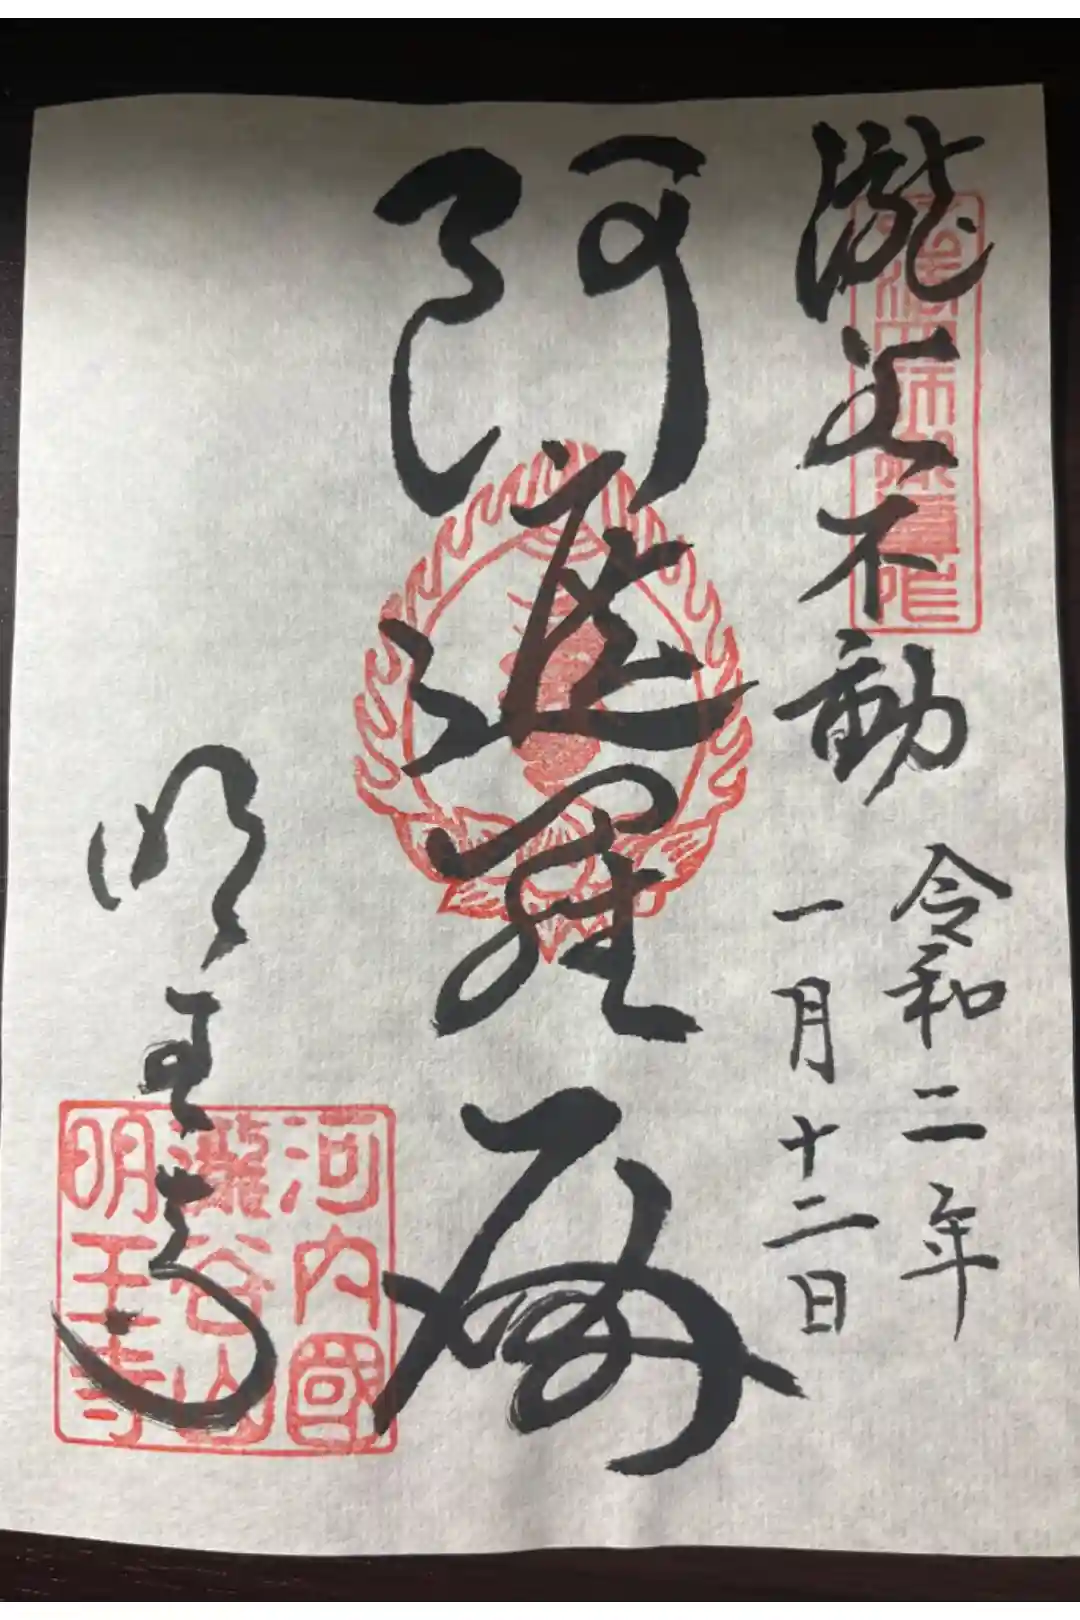 瀧谷不動
令和二年
一月十二日
阿遮羅尊
明王寺
河内國
瀧谷山
明王寺